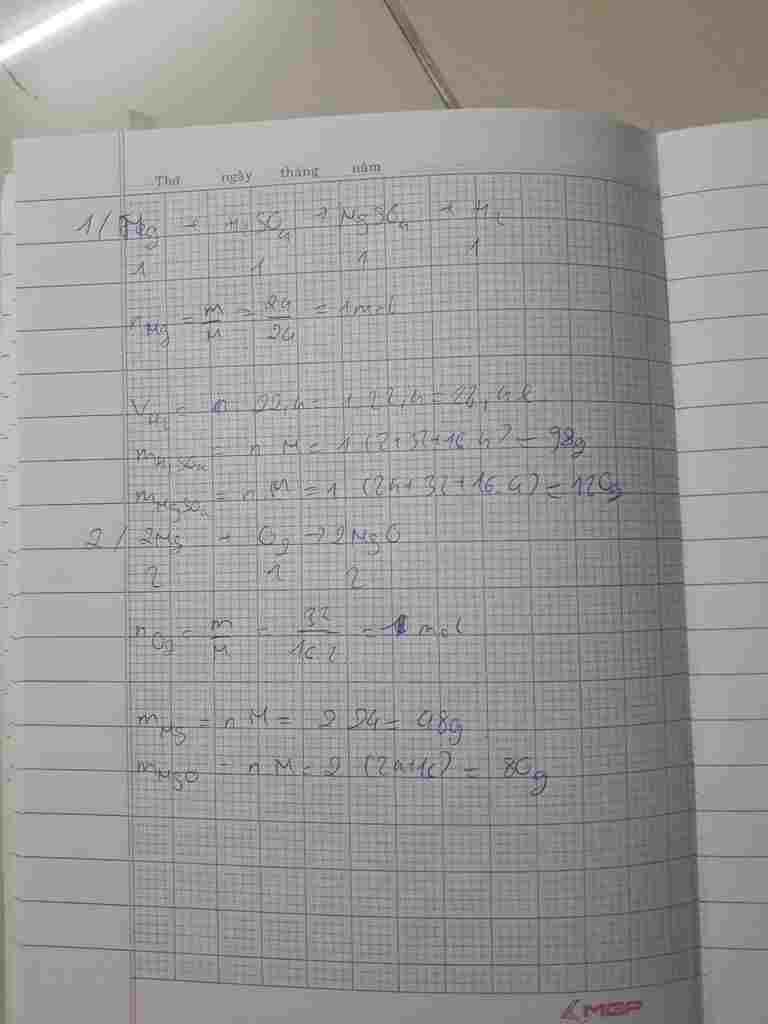 Thứ ngày tháng năm
1/ Mg + H₂SO₄ → MgSO₄ + H₂
1 1 1 1
nMg = m/M = 24/24 = 1 mol
VH₂ = n. 22,4 = 1. 22,4 = 22,4 l
mH₂SO₄ = n. M = 1. (2+32+16.4) = 98g
mMgSO₄ = n. M = 1. (24+32+16.4) = 120g
2/ 2Mg + O₂ → 2MgO
2 1 2
nO₂ = m/M = 32/16.2 = 1 mol
mMg = n. M = 2. 24 = 48g
mMgO = n. M = 2. (24+16) = 80g
MGP